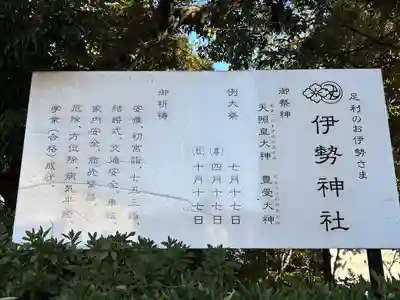 足利のお伊勢さま
伊勢神社
御祭神
天照皇大神 豊受大神
例大祭
七月十七日
(春) 四月十七日
(秋) 十月十七日
御祈祷
安産、初宮詣、七五三詣、
結婚式、交通安全、車祓、
家内安全、商売繁昌、
厄除、方位除、病気平癒、
学業(合格、成就、